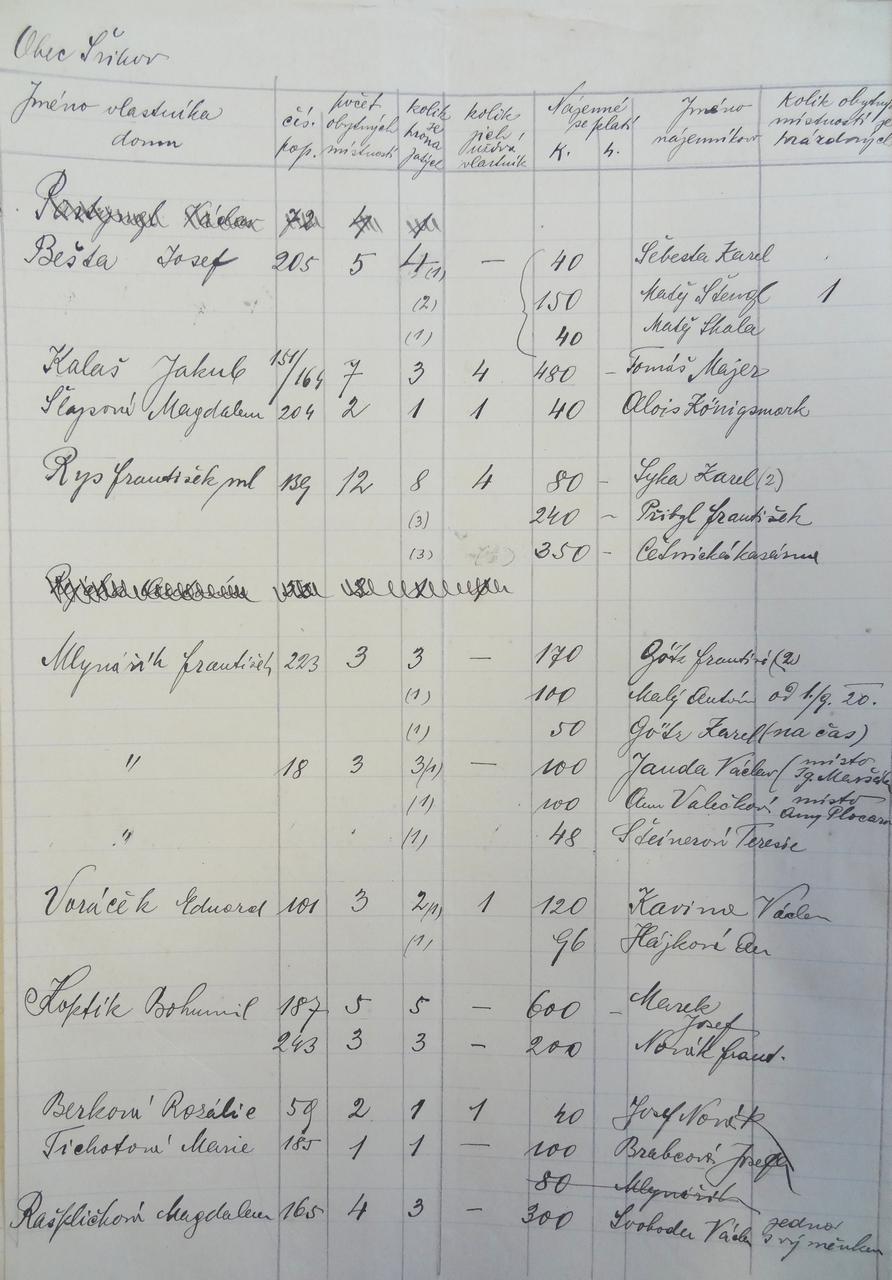 Obec Šrihov
Jméno vlastníka domu čís. pop. počet obytných místností kolik se pronajatých kolik jich užívá vlastník Nájemné se platí K. h. Jméno nájemníkov Kolik obytný místností je
72 4
Bešta Josef 205 5 4 (1) — 40 Šebesta Karel
(2) 150 Matěj Štengl 1
(1) 40 Matěj Skala
Kalaš Jakub 151/164 7 3 4 480 – Tomáš Majer
Šlapsová Magdalena 204 2 1 1 40 Alois Königsmark
Rys František ml 139 12 8 4 80 – Syka Karel (2)
(3) 240 – Přibyl František
(3) 350 – Četnická kasárna
Mlynářík František 223 3 3 — 170 Götz Františ (2)
(1) 100 Malý Antonín od 1/9. 20.
(1) 50 Götz Karel (na čas)
" 18 3 3 (1) — 100 Janda Václav (místo Ig. Maršála
(1) 100 Ann Valečková místo Any Plocar
" (1) 48 Šteinerová Teresie
Voráček Eduard 101 3 2 (1) 1 120 Kavina Václav
(1) 96 Hájková An
Koptík Bohumil 187 5 5 – 600 – Marek Josef
243 3 3 – 200 Novák frant.
Berková Rozálie 59 2 1 1 40 Josef Novák
Tichotová Marie 185 1 1 — 100 Brabcová Josefa
80 Mlynářík
Rašpličková Magdalena 165 4 3 – 300 Svoboda Václav jedna výměnkem